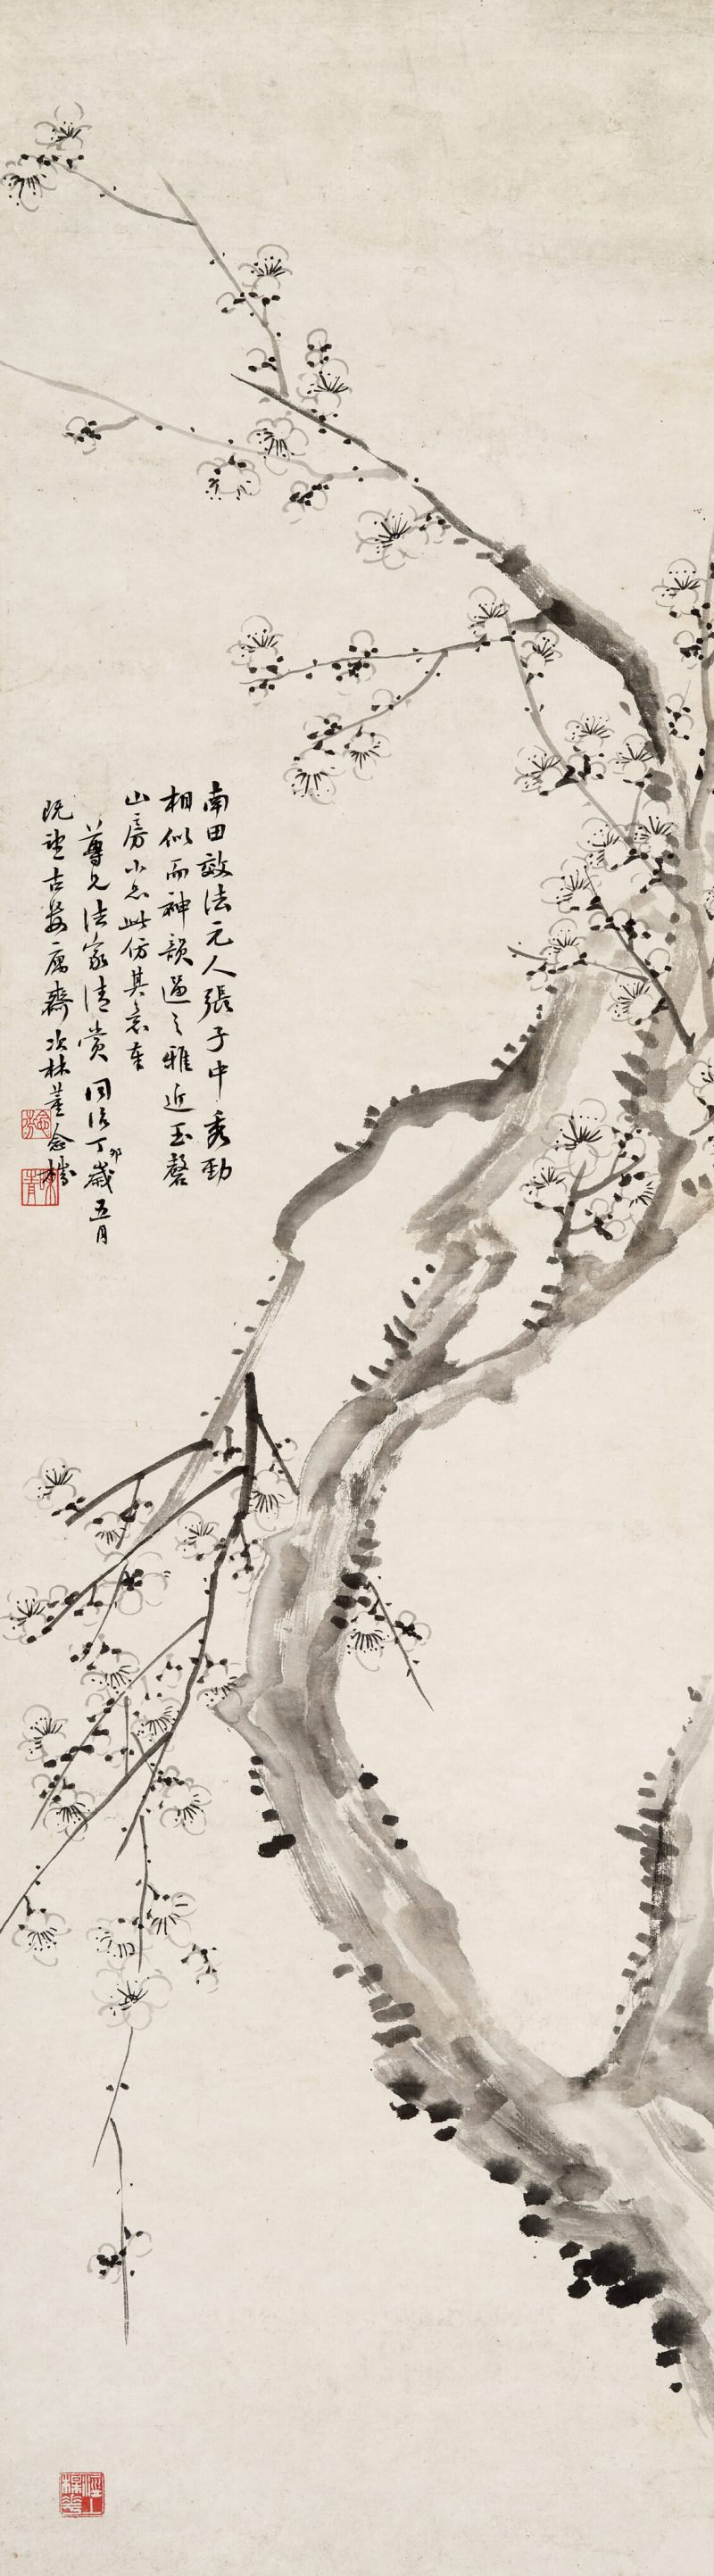 南田效法元人張子中秀勁
相似而神韻過之雅近玉磬
山房小點此仿其意奉
尊兄法家清賞同治丁卯歲五月
既望古安寓齋次林董念棻